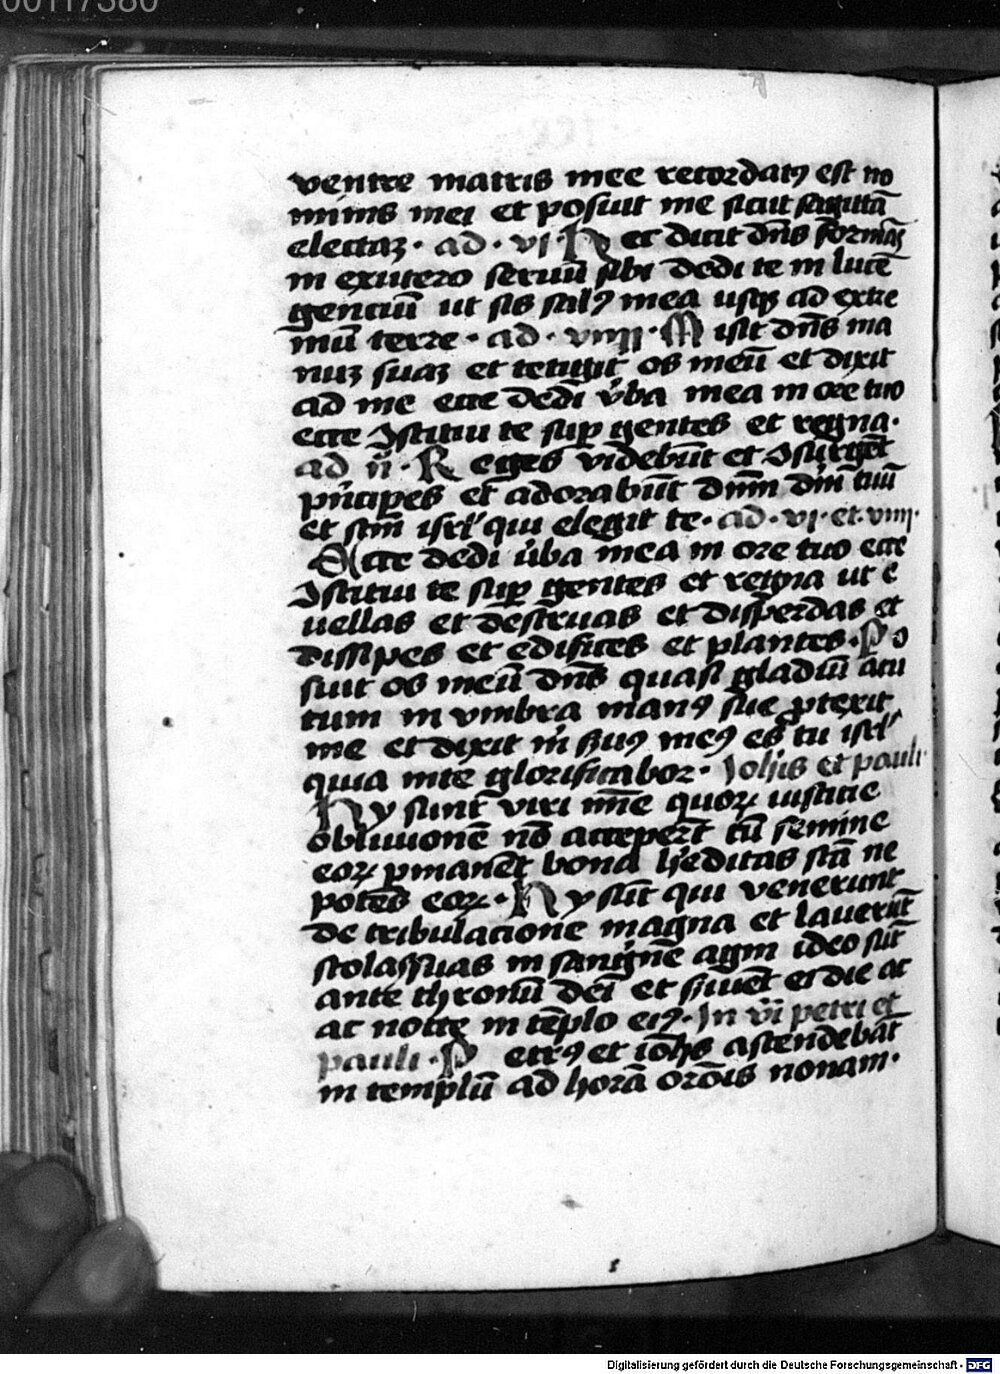 00117380
ventre matris mee recordatꝰ est no
minis mei et posuit me sicut sagittā
electaꝫ · ad · vi · Hec dicit dn̄s formās
in exutero seruū sibi dedi te in lucē
genciū ut sis salꝰ mea usqꝫ ad extre
mū terre · ad · viiii · Misit dn̄s ma
nuꝫ suaꝫ et tetigit os meū et dixit
ad me ecce dedi v̄ba mea in ore tuo
ecce Istitui te sup̄ gentes et regna ·
ad n̄ · Reges videbūt et Isurgēt
prīcipes et adorabūt dn̄m dm̄ tuū
et scm̄ isrl' qui elegit te · ad · vi · et · viiii ·
Ecce dedi v̄ba mea in ore tuo ecce
Istitui te sup̄ gentes et regna ut e
uellas et destruas et disperdas et
dissipes et edifices et plantes · Po
suit os meū dn̄s quasi gladiū acu
tum in vmbra manꝰ sue ꝓtexit
me et dixit m̄ seruꝰ meꝰ es tu isrl'
quia inte glorificabor · Ioh̄is et pauli
Hy sunt viri mīe quoꝝ iusticie
obliuionē nō acceper̄t cū semine
eoꝝ ꝑmanēt bona h̄editas scā ne
potes eoꝝ · Hy sūt qui venerunt
de tribulacione magna et lauerūt
stolas suas in sanguīe agni ideo sūt
ante thronū dei et s̄uiūt ei die ac
ac nocte in tēplo eiꝰ · In vi petri et
pauli · Petrꝰ et ioh̄s ascendebāt
in templū ad horā orōis nonam ·
Digitalisierung gefördert durch die Deutsche Forschungsgemeinschaft - DFG